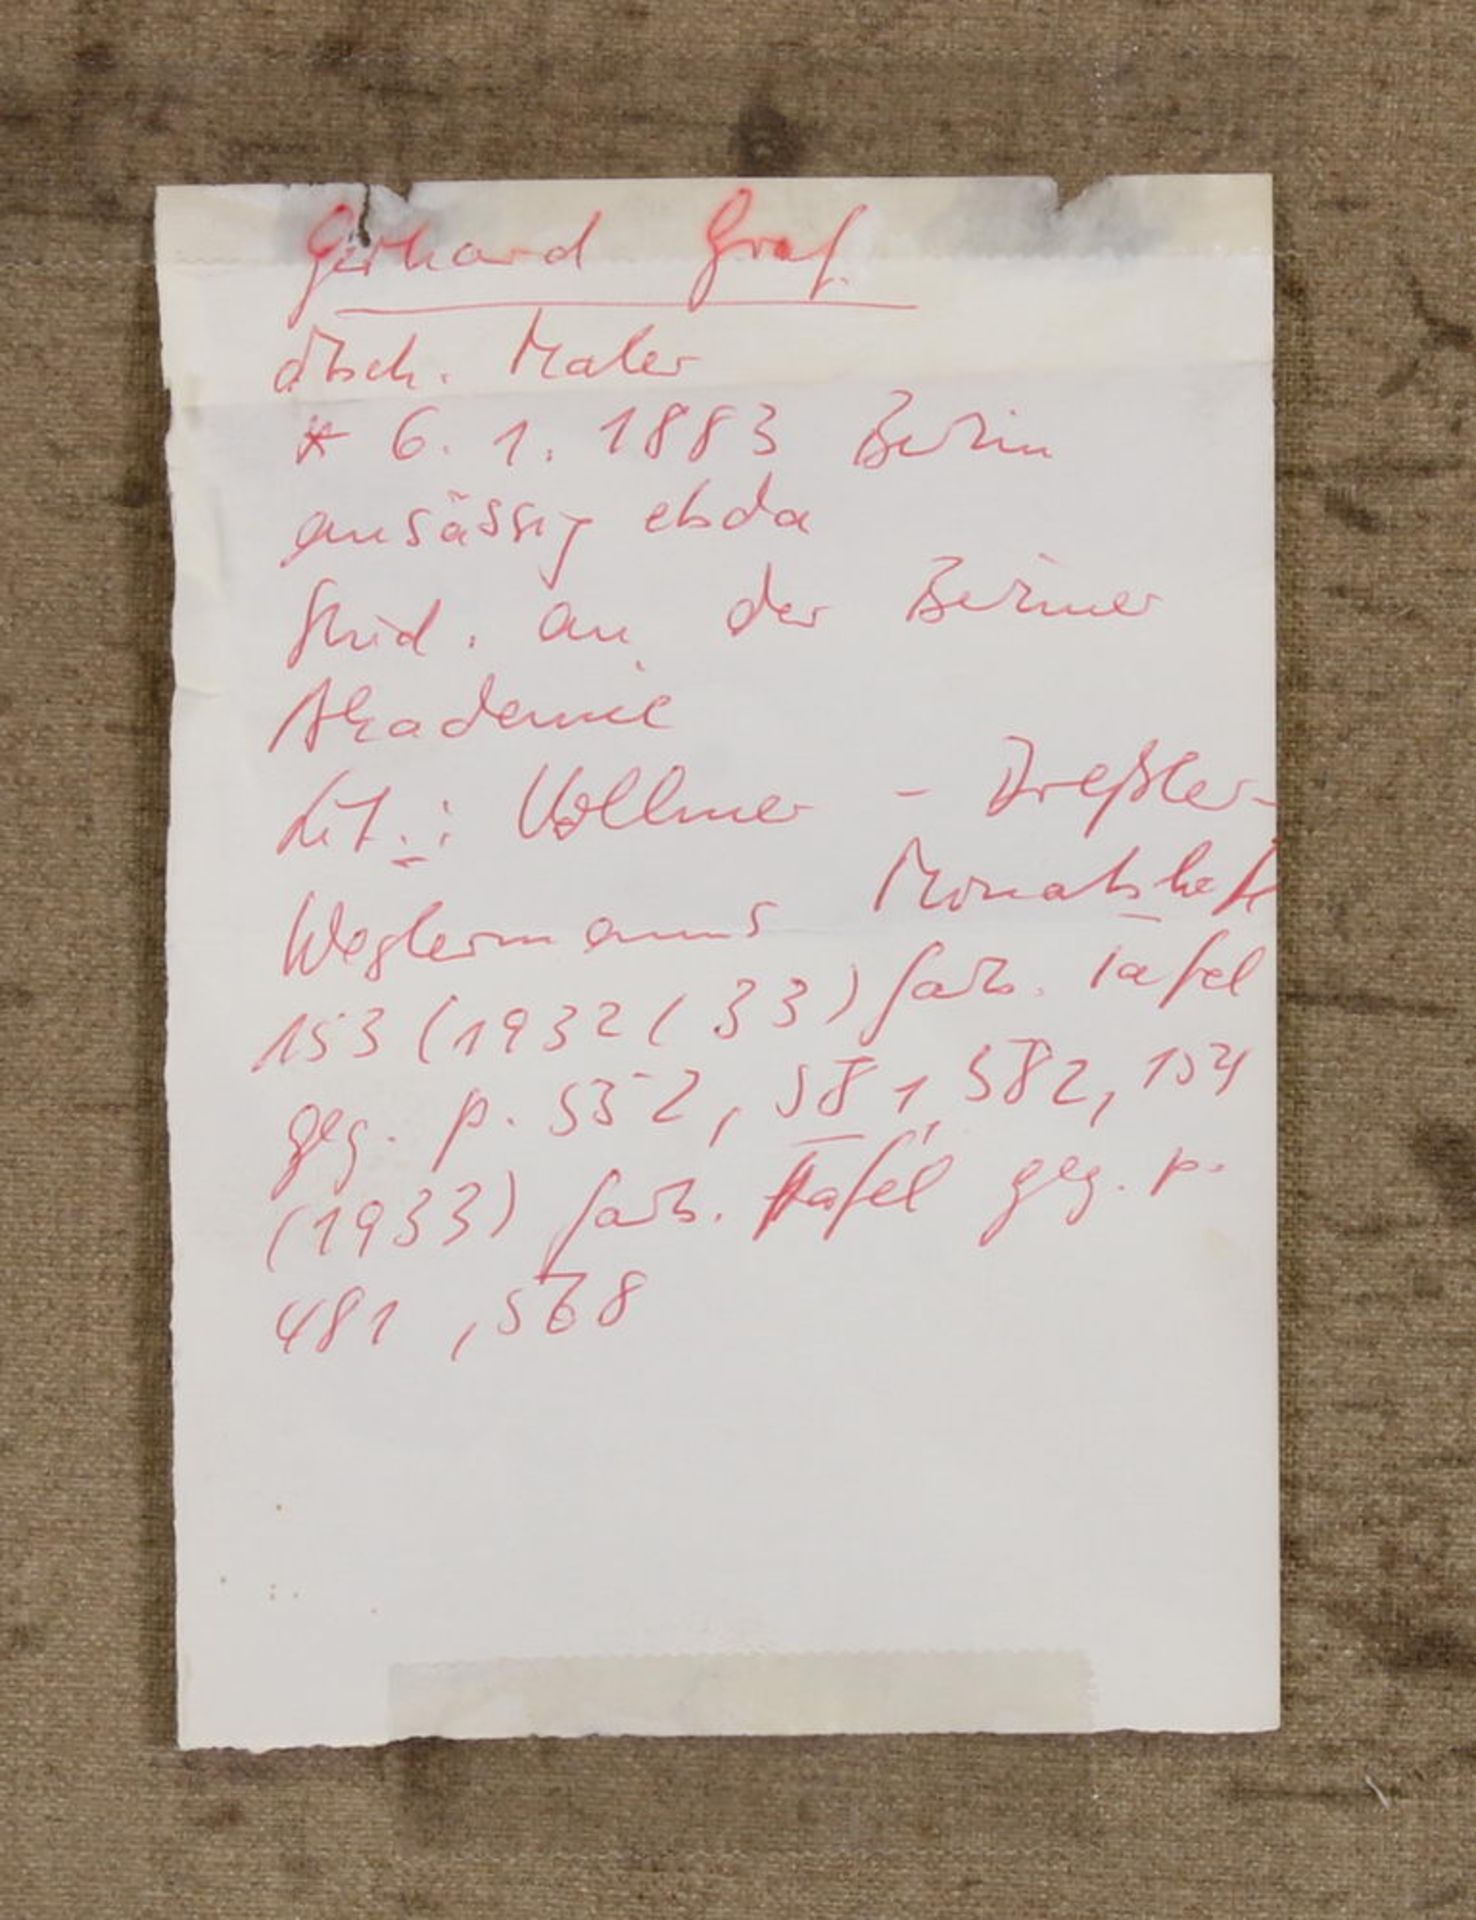 Gerhard Graf.
dtsch. Maler
* 6. 1. 1883 Berlin
ansässig ebda
Stud. an der Berliner
Akademie
Lit.: Vollmer - Dreßler -
Westermanns Monatshefte
153 (1932/33) farb. Tafel
geg. p. 552, 581, 582, 154
(1933) farb. Tafel geg. p.
481, 568